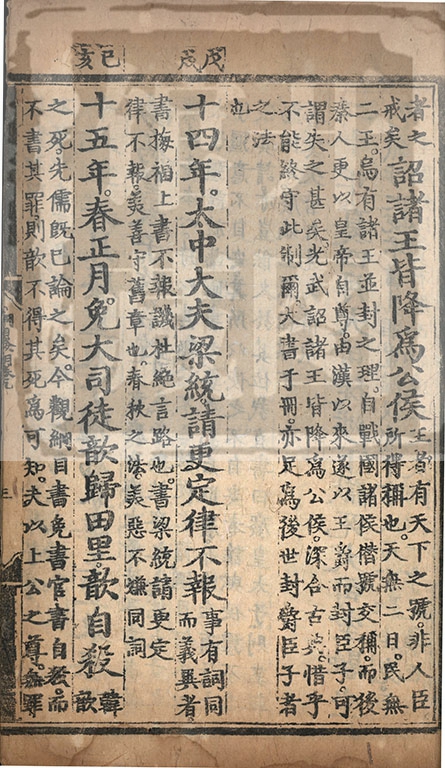 戊戌
己亥
者之
戒矣詔諸王皆降爲公侯王者有天下之号非人臣
所得稱也天無二日民無
二王烏有諸王並封之理自戰國諸侯僭號交稱而後
秦人更以皇帝自尊由漢以來遂以王爵而封臣子可
謂失之甚矣光武詔諸王皆降爲公侯深合古典惜乎
不能終守此制爾大書于冊亦足爲後世封爵臣子者
之法
也
十四年太中大夫梁統請更定律不報事有詞同
而義異者
書梅福上書不報譏杜絶言路也書梁統請更定
律不報美善守舊章也春秋之法美惡不嫌同詞
十五年春正月免大司徒歆歸田里歆自殺韓
歆
之死先儒既已論之矣今觀綱目書免書官書自殺而
不書其罪則歆不得其死爲可知夫以上公之尊無罪